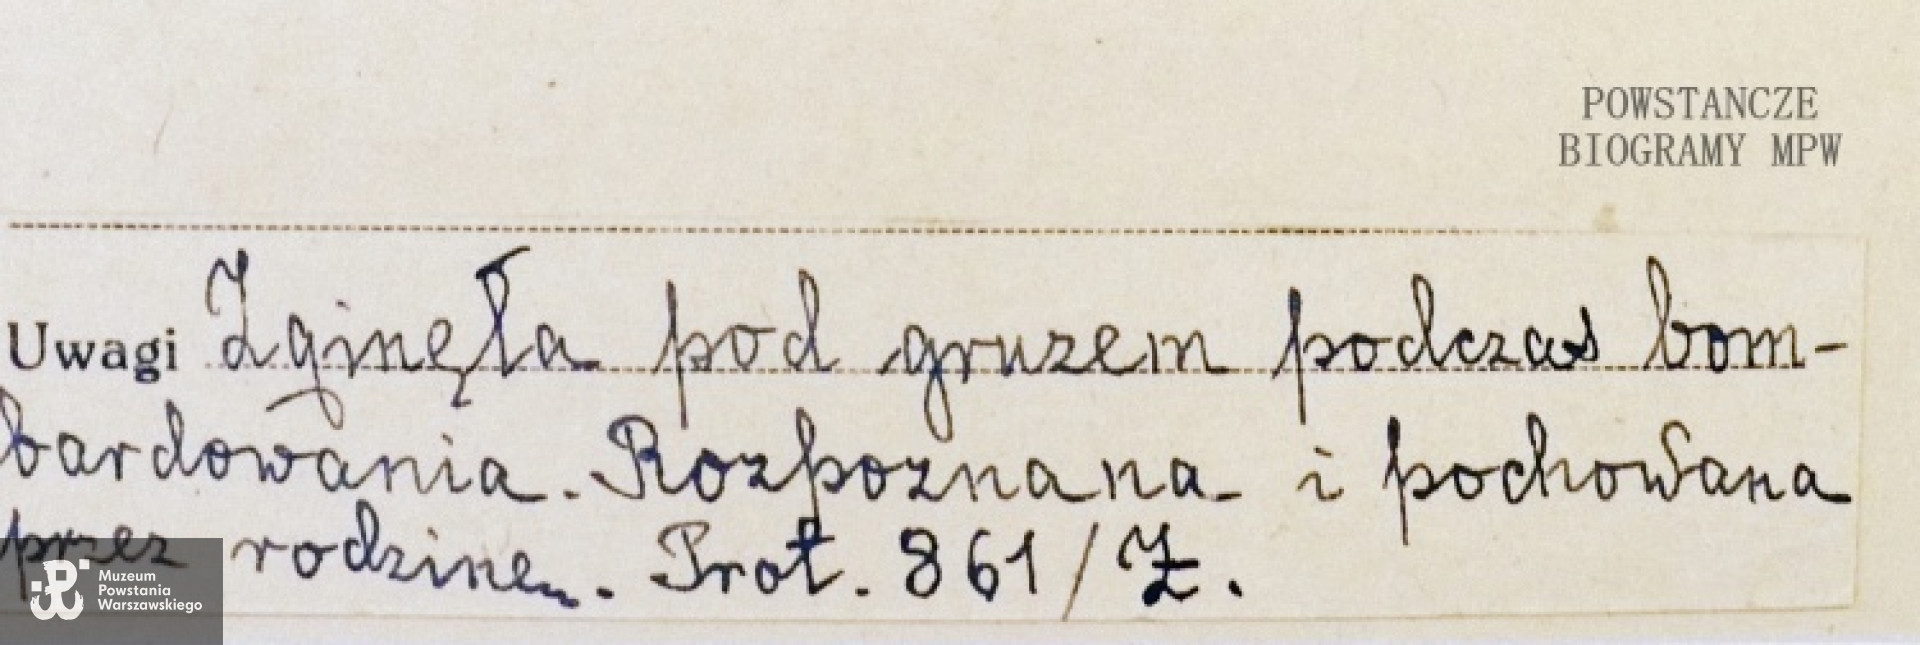 POWSTANCZE
BIOGRAMY MPW
Uwagi Zginęła pod gruzem podczas bom-
bardowania. Rozpoznana i pochowana
przez rodzinę. Prot. 861/Z.
Muzeum
Powstania
Warszawskiego